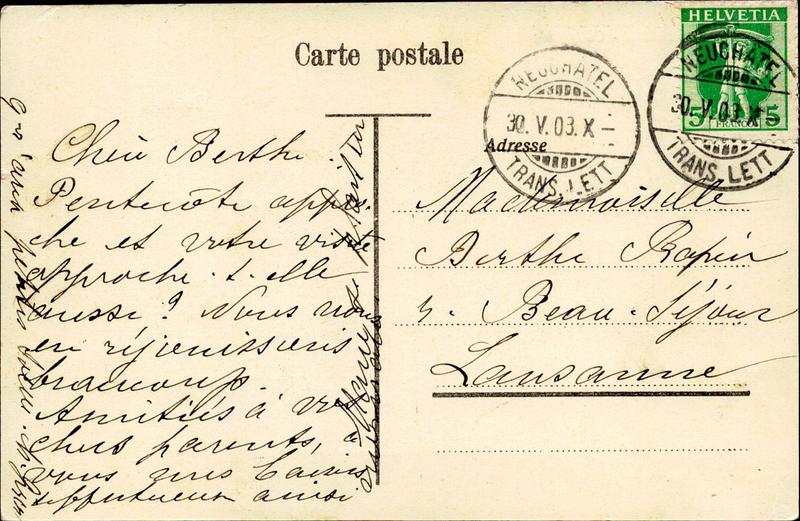 Carte postale
HELVETIA
5 FRANCO 5
NEUCHATEL
30. V. 09. X –
TRANS. LETT
NEUCHATEL
30. V. 09. X –
TRANS. LETT
Adresse
Mademoiselle
Berthe Rapin
4. Beau-Séjour
Lausanne
Chère Berthe.
Pentecôte appro-
che et votre visite
approche-t-elle
aussi? Nous nous
en réjouissons
beaucoup.
Amitiés à vos
chers parents, à
vous mes baisers
affectueux ainsi